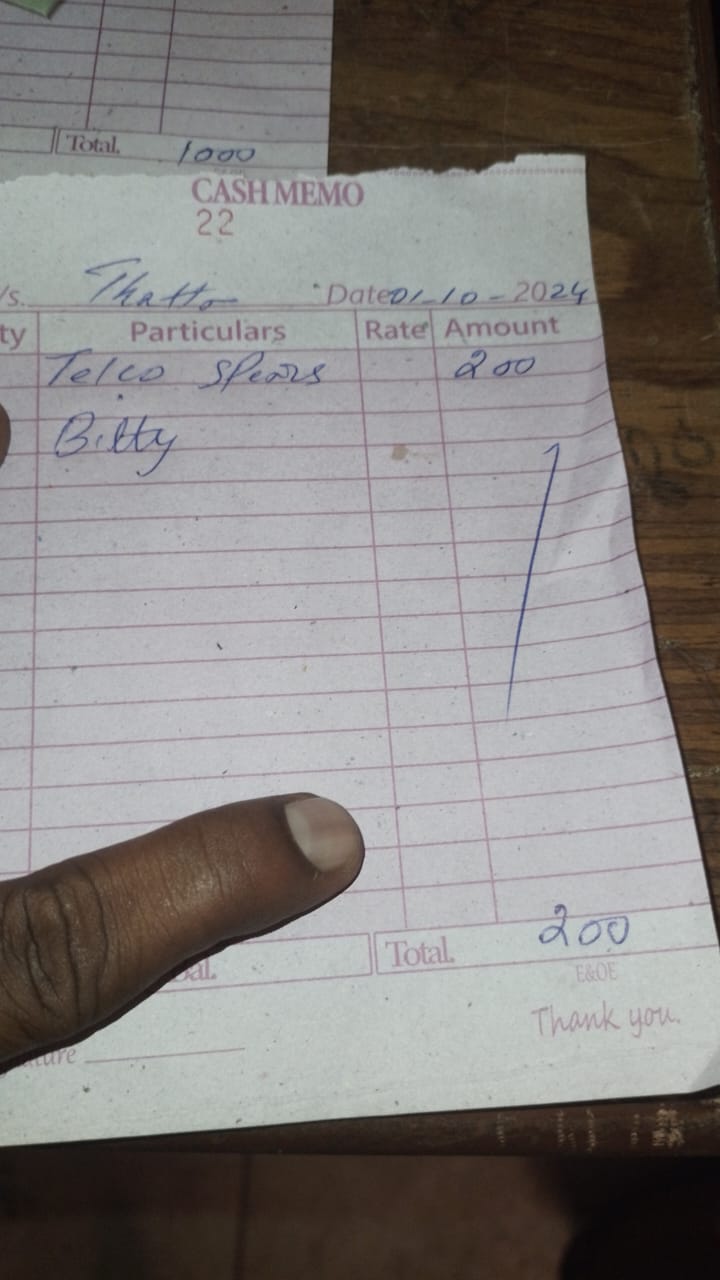 Total. 1000
CASH MEMO
22
/s. Thatta Date 01-10-2024
ty Particulars Rate Amount
Telco Spears 200
Bilty
Total. 200
al.
E&OE
Thank you.
ture